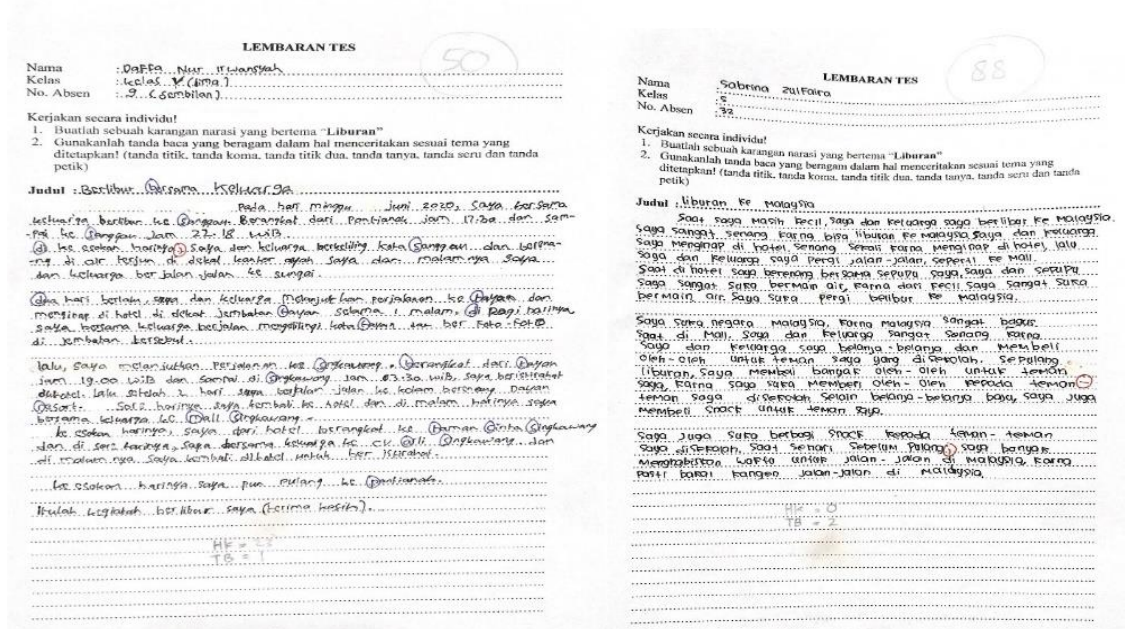 LEMBARAN TES
50
Nama : Daffa Nur Irwansyah
Kelas : kelas V (lima)
No. Absen : 9 (sembilan)
Kerjakan secara individu!
1. Buatlah sebuah karangan narasi yang bertema “Liburan”
2. Gunakanlah tanda baca yang beragam dalam hal menceritakan sesuai tema yang
ditetapkan! (tanda titik, tanda koma, tanda titik dua, tanda tanya, tanda seru dan tanda
petik)
Judul : Berlibur bersama Keluarga
Pada hari minggu juni 2020, saya bersama
keluarga berlibur ke sanggau. Berangkat dari Pontianak jam 17.30 dan sam-
-pai ke sanggau jam 22.18 WIB.
di ke esokan harinya, saya dan keluarga berkeliling kota sanggau dan berena-
-ng di air terjun di dekat kantor ayah saya dan malamnya saya
dan keluarga berjalan-jalan ke sungai.
dua hari berlalu, saya dan keluarga melanjutkan perjalanan ke tayan dan
menginap di hotel di dekat jembatan tayan selama 1 malam, di pagi harinya
saya bersama keluarga berjalan mengelilingi kota tayan ber foto-foto
di jembatan tersebut.
lalu, saya melanjutkan perjalanan ke singkawang, berangkat dari tayan
jam 19.00 WIB dan sampai di singkawang jam 03.30 wib, saya beristirahat
dihotel. lalu setelah 2 hari saya berjalan-jalan ke kolam berenang, Dayan
resort. Sore harinya saya kembali ke hotel dan di malam harinya saya
bersama keluarga ke mall singkawang.
ke esokan harinya, saya dari hotel berangkat ke taman cinta singkawang
dan di sore harinya, saya bersama keluarga ke cv singkawang dan
di malam nya saya kembali dihotel untuk ber istirahat.
ke esokan harinya saya pun pulang ke pontianak.
Itulah kegiatan berlibur saya (terima kasih).
TB = 1
LEMBARAN TES
88
Nama : Sabrina Zulfaira
Kelas : 5
No. Absen : 32
Kerjakan secara individu!
1. Buatlah sebuah karangan narasi yang bertema “Liburan”
2. Gunakanlah tanda baca yang beragam dalam hal menceritakan sesuai tema yang
ditetapkan! (tanda titik, tanda koma, tanda titik dua, tanda tanya, tanda seru dan tanda
petik)
Judul : liburan ke malaysia
Saat saya masih kecil, saya dan keluarga saya berlibur ke Malaysia.
Saya sangat senang karna bisa liburan ke malaysia saya dan keluarga.
Saya menginap di hotel, senang sekali karna menginap di hotel, lalu
saya dan keluarga saya pergi jalan-jalan, seperti ke mall.
Saat di hotel saya berenang bersama sepupu saya, saya dan sepupu
saya sangat suka bermain air, karna dari kecil saya sangat suka
bermain air. Saya suka pergi belibur ke malaysia.
Saya suka negara malaysia, karna malaysia sangat bagus.
Saat di mall, saya dan keluarga sangat senang karna
saya dan keluarga saya belanja-belanja dan membeli
oleh-oleh untuk teman saya yang disekolah. Sepulang
liburan, saya membeli banyak oleh-oleh untuk teman
saya, karna saya suka memberi oleh-oleh kepada teman-
teman saya disekolah selain belanja-belanja baju, saya juga
membeli snack untuk teman saya.
Saya juga suka berbagi snack kepada teman-teman
saya disekolah, saat sehari sebelum pulang, saya banyak
menghabiskan waktu untuk jalan-jalan di malaysia, karna
pasti bakal kangen jalan-jalan di malaysia.
HK = 0
TB = 2